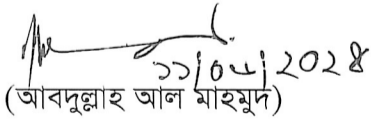 ১১/০৮/২০২৪
(আবদুল্লাহ আল মাহমুদ)